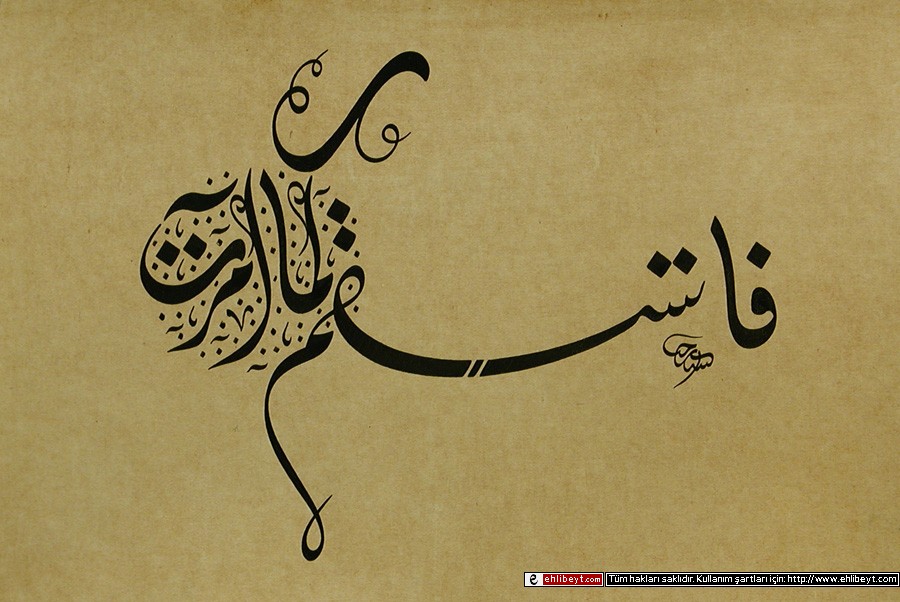 فاستقم كما امرت
ehlibeyt.com Tüm hakları saklıdır. Kullanım şartları için: http://www.ehlibeyt.com